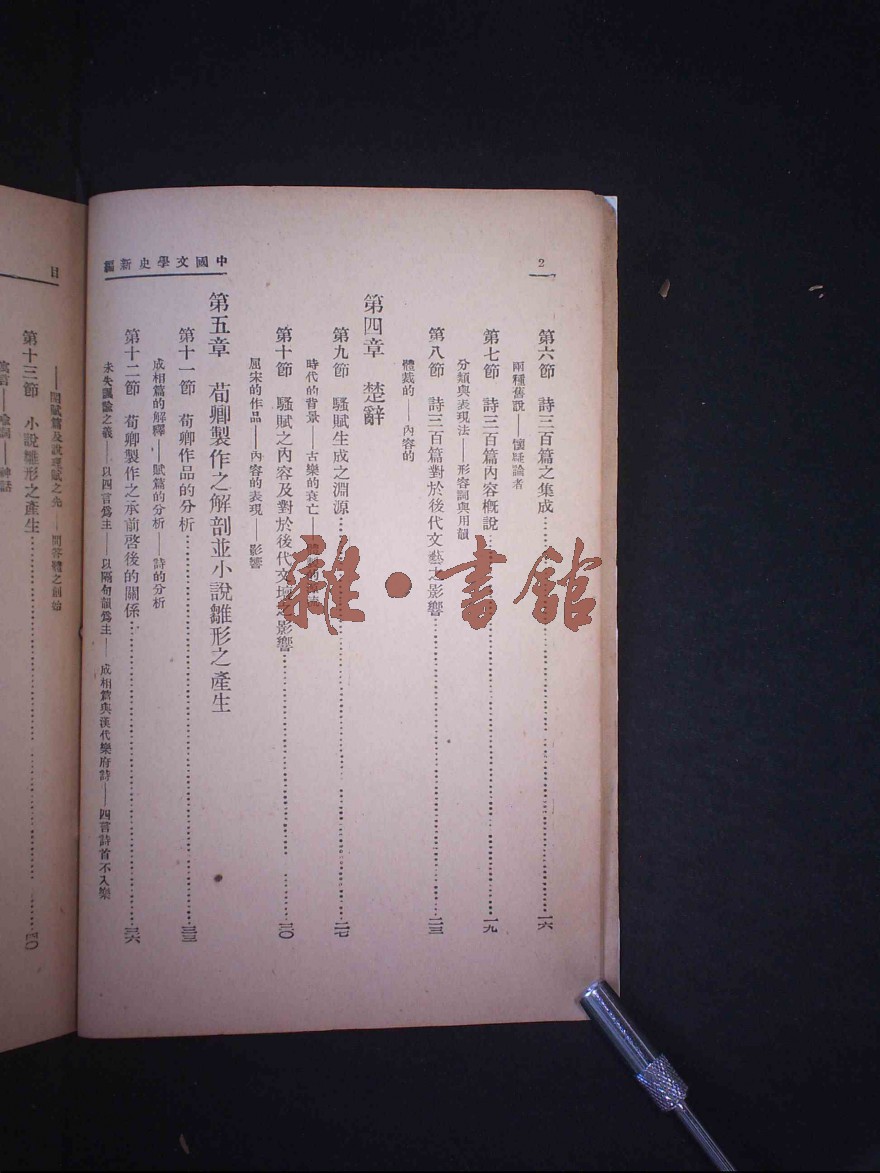 2
中國文學史新編
第六節 詩三百篇之集成……16
兩種舊說——懷疑論者
第七節 詩三百篇內容概說……一九
分類與表現法——形容詞與用韻
第八節 詩三百篇對於後代文藝之影響……二三
體裁的——內容的
第四章 楚辭
第九節 騷賦生成之淵源……二七
時代的背景——古樂的衰亡——
第十節 騷賦之內容及對於後代文壇之影響……三〇
屈宋的作品——內容的表現——影響
第五章 荀卿製作之解剖並小說雛形之產生
第十一節 荀卿作品的分析……三三
成相篇的解釋——賦篇的分析——詩的分析
第十二節 荀卿製作之承前啓後的關係……三六
未失諷諭之義——以四言爲主——以隔句韻爲主——成相篇與漢代樂府詩——四言詩首不入樂
目
——開賦篇及說理賦之先——問答體之創始
第十三節 小說雛形之產生……四〇
寓言——神話
雜·書館